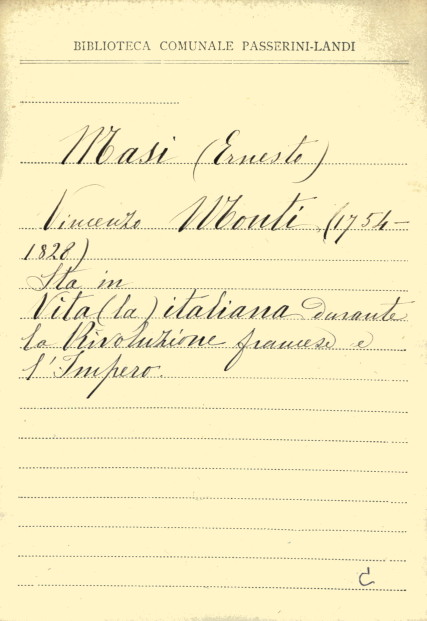 BIBLIOTECA COMUNALE PASSERINI-LANDI
Masi (Ernesto)
Vincenzo Monti (1754-
1828)
Sta in
Vita (la) italiana durante
la Rivoluzione francese e
l'Impero.